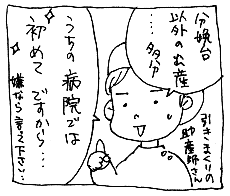 分娩台
以外のお産
…多分
うちの病院では
初めてですから…
嫌なら言って下さい…
引きまくりの
助産師さん